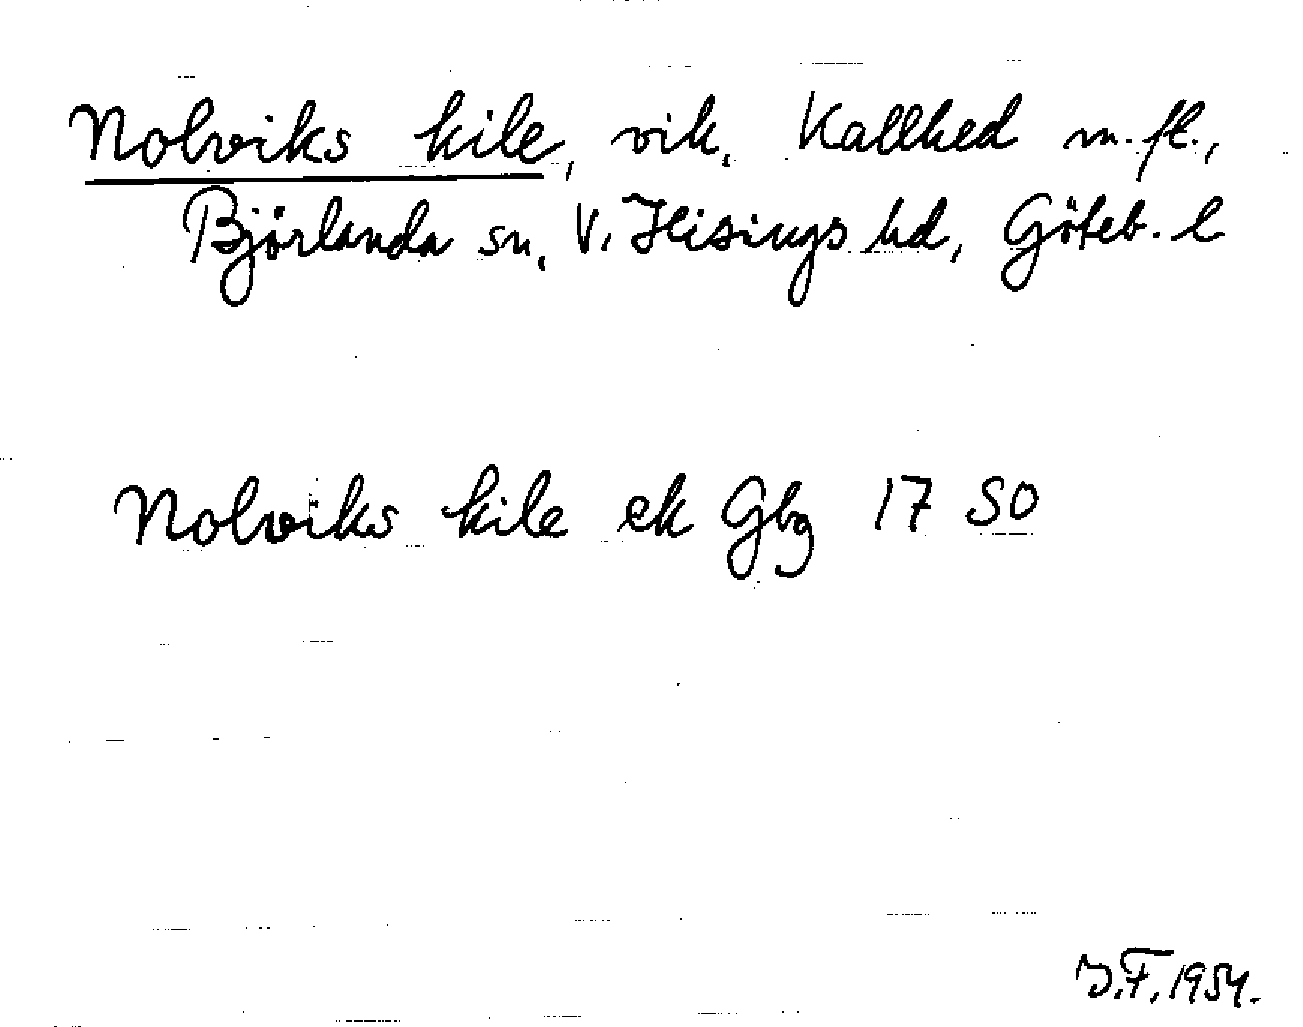 Nolviks kile, vik, Kallhed m.fl.,
Björlanda sn, V. Hisings hd, Göteb. l
Nolviks kile ek Gbg 17 SO
J.F. 1954.